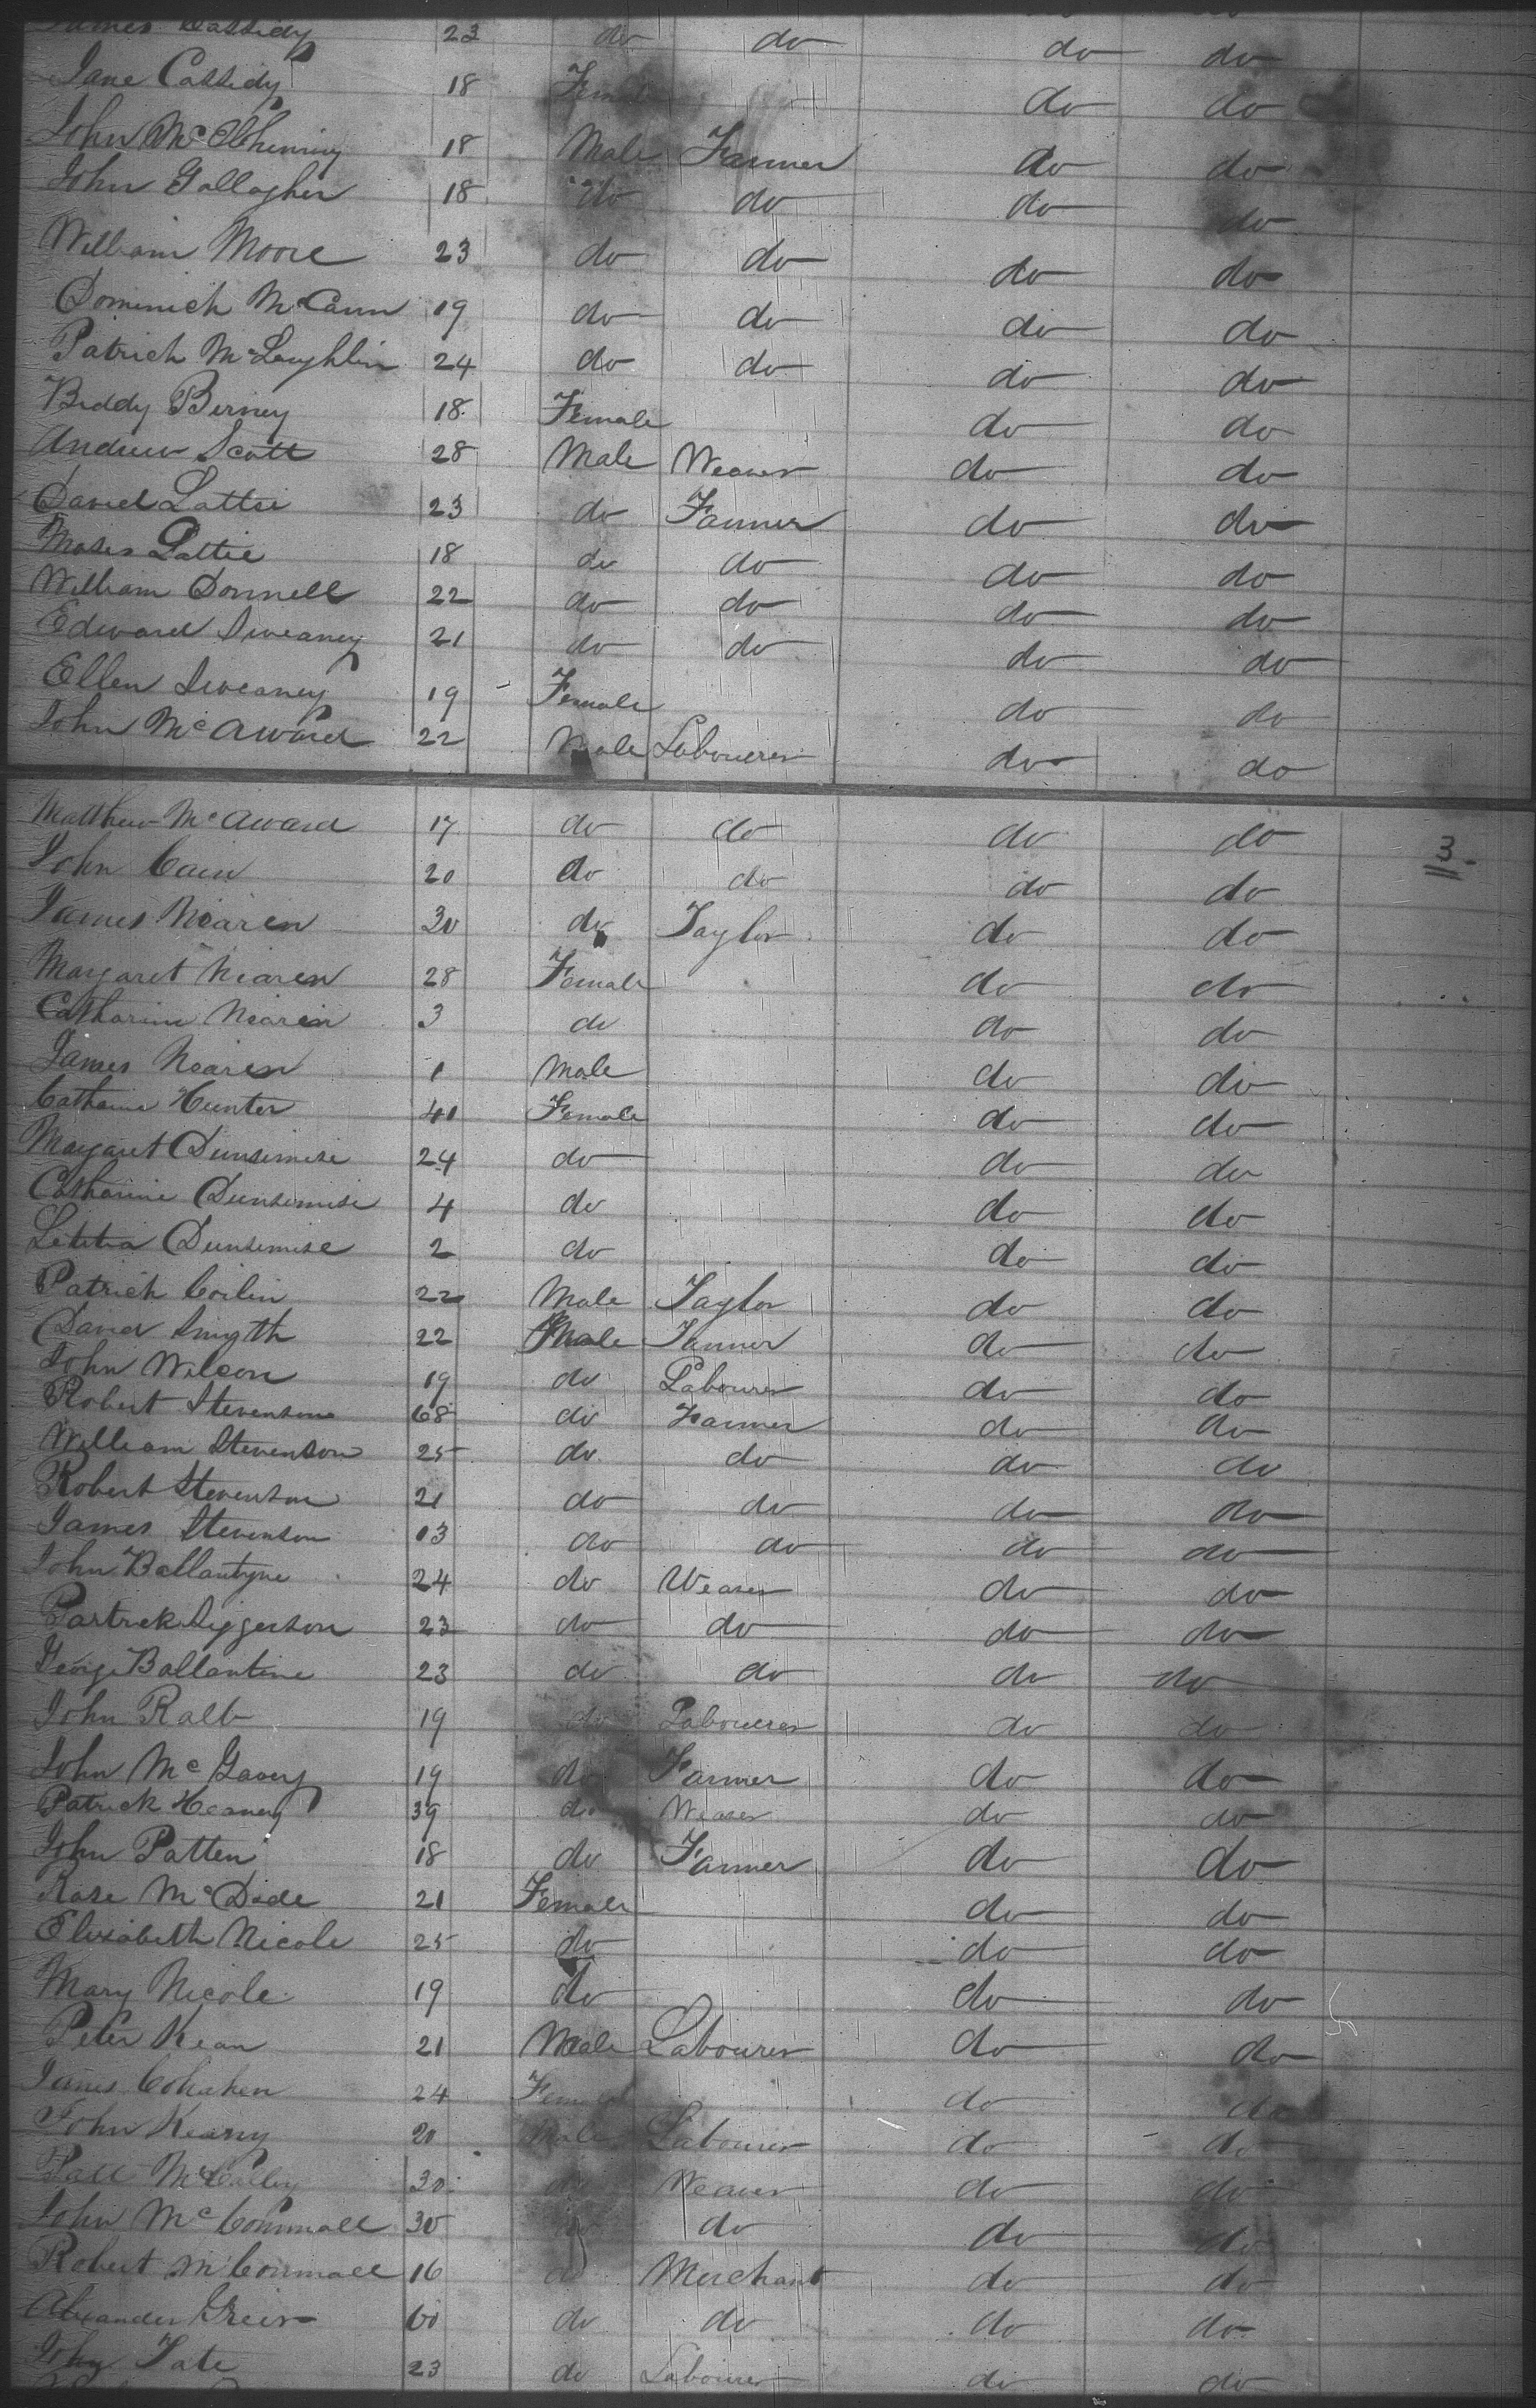 James Cassidy 23 do do do do
Jane Cassidy 18 Female do do
John McElhinny 18 Male Farmer do do
John Gallagher 18 do do do do
William Moore 23 do do do do
Dominick McCann 19 do do do do
Patrick McLaughlin 24 do do do do
Biddy Birney 18 Female do do
Andrew Scott 28 Male Weaver do do
David Lattie 23 do Farmer do do
Moses Lattie 18 do do do do
William Donnell 22 do do do do
Edward Sweaney 21 do do do do
Ellen Sweaney 19 Female do do
John McAward 22 Male Labourer do do
Matthew McAward 17 do do do do 3
John Cain 20 do do do do
James Nearen 30 do Taylor do do
Margaret Nearen 28 Female do do
Catharine Nearen 3 do do do
James Nearen 1 Male do do
Catharine Hunter 41 Female do do
Margaret Dunsemise 24 do do do
Catharine Dunsemise 4 do do do
Letitia Dunsemise 2 do do do
Patrick Coilin 22 Male Taylor do do
David Smyth 22 Male Farmer do do
John Wilson 19 do Labourer do do
Robert Stevenson 68 do Farmer do do
William Stevenson 25 do do do do
Robert Stevenson 21 do do do do
James Stevenson 13 do do do do
John Ballantyne 24 do Weaver do do
Partrick Siggerson 23 do do do do
George Ballantine 23 do do do do
John Ralb 19 do Labourer do do
John McGavey 19 do Farmer do do
Patrick Heaney 39 do Weaver do do
John Patten 18 do Farmer do do
Rose McDade 21 Female do do
Elisabeth Nicole 25 do do do
Mary Nicole 19 do do do
Peter Kean 21 Male Labourer do do
James 24 Female do do
John Keany 20 Male Labourer do do
McCalley 30 do Weaver do do
John McConmall 30 do do do do
Robert McConmall 16 do Merchant do do
Alexander Greir 60 do do do do
John Tate 23 do Labourer do do